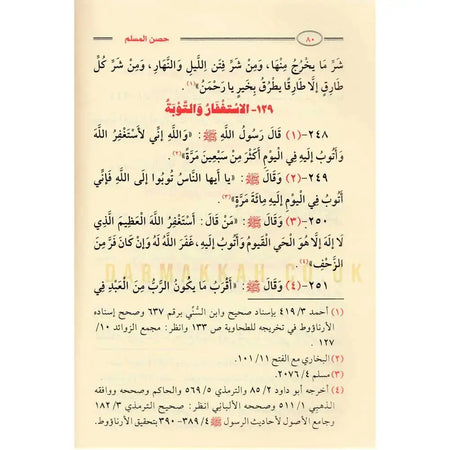 حصن المسلم
٨٠
شَرِّ مَا يَخْرُجُ مِنْهَا، وَمِنْ شَرِّ فِتَنِ اللَّيلِ وَالنَّهَارِ، وَمِنْ شَرِّ كُلِّ
طَارِقٍ إلَّا طَارِقًا يَطْرُقُ بِخَيرٍ يا رَحْمَنُ»(١).
١٢٩- الاسْتغْفَارُ وَالتَّوْبَةُ
٢٤٨- (١) قَالَ رَسُولُ اللَّهِ ﷺ: «وَاللَّهِ إنِّي لأَسْتَغْفِرُ اللَّهَ
وَأَتُوبُ إلَيهِ فِي الْيَوْمِ أَكْثَرَ مِنْ سَبْعِينَ مَرَّةً»(٢).
٢٤٩- (٢) وَقَالَ ﷺ: «يا أيها النَّاسُ تُوبُوا إلَى اللَّهِ فَإنِّي
أَتُوبُ فِي الْيَوْمِ إلَيهِ مِائَةَ مَرَّةٍ»(٣).
٢٥٠- (٣) وَقَالَ ﷺ: «مَنْ قَالَ: أَسْتَغْفِرُ اللَّهَ الْعَظِيمَ الَّذِي
لَا إلَهَ إلَّا هُوَ الْحَي الْقَيومُ وَأَتُوبُ إلَيهِ، غَفَرَ اللَّهُ لَهُ وَإنْ كَانَ فَرَّ مِنَ
الزَّحْفِ»(٤).
DARMAKKAH.CO.UK
٢٥١- (٤) وَقَالَ ﷺ: «أَقْرَبُ مَا يَكُونُ الرَّبُّ مِنَ الْعَبْدِ فِي
(١) أحمد ٣/ ٤١٩ بإسناد صحيح وابن السُّنِّي برقم ٦٣٧ وصحح إسناده
الأرناؤوط في تخريجه للطحاوية ص ١٣٣ وانظر: مجمع الزوائد ١٠/
١٢٧ .
(٢) البخاري مع الفتح ١١/ ١٠١.
(٣) مسلم ٤/ ٢٠٧٦.
(٤) أخرجه أبو داود ٢/ ٨٥ والترمذي ٥/ ٥٦٩ والحاكم وصححه ووافقه
الذهبي ١/ ٥١١ وصححه الألباني انظر: صحيح الترمذي ٣/ ١٨٢
وجامع الأصول لأحاديث الرسول ﷺ ٤/ ٣٨٩- ٣٩٠ بتحقيق الأرناؤوط.